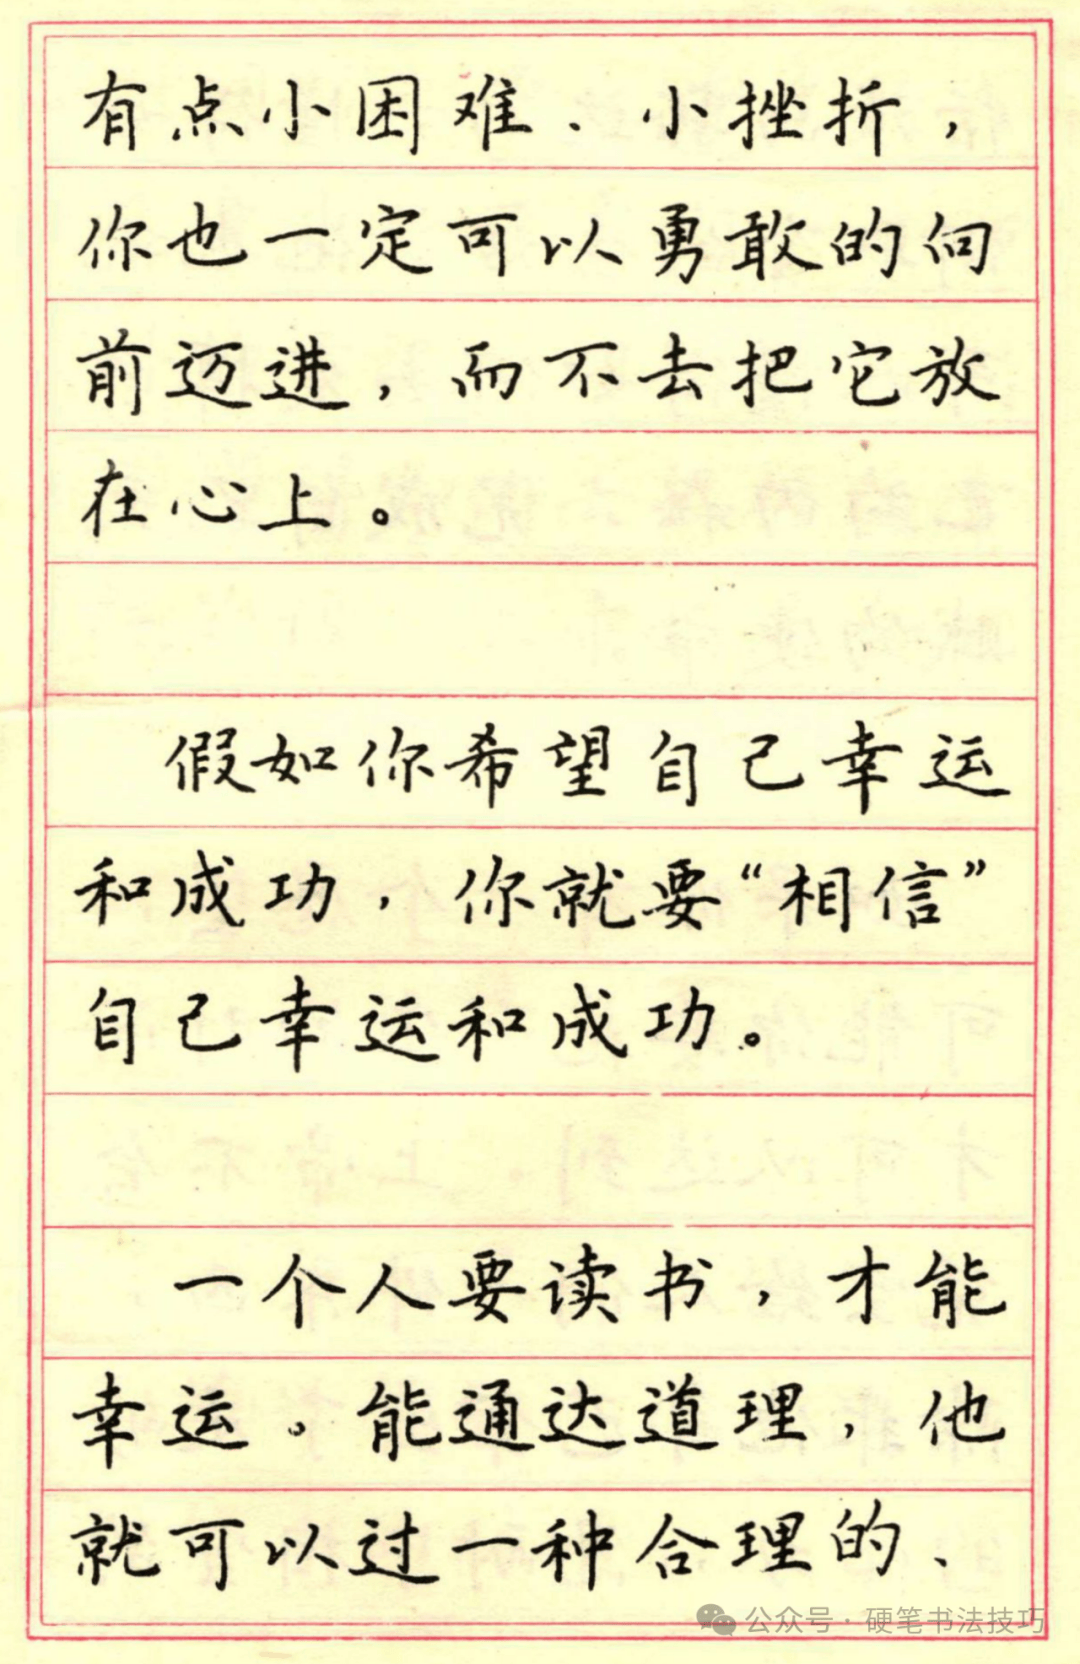 有点小困难、小挫折，
你也一定可以勇敢的向
前迈进，而不去把它放
在心上。
假如你希望自己幸运
和成功，你就要“相信”
自己幸运和成功。
一个人要读书，才能
幸运。能通达道理，他
就可以过一种合理的、
公众号·硬笔书法技巧